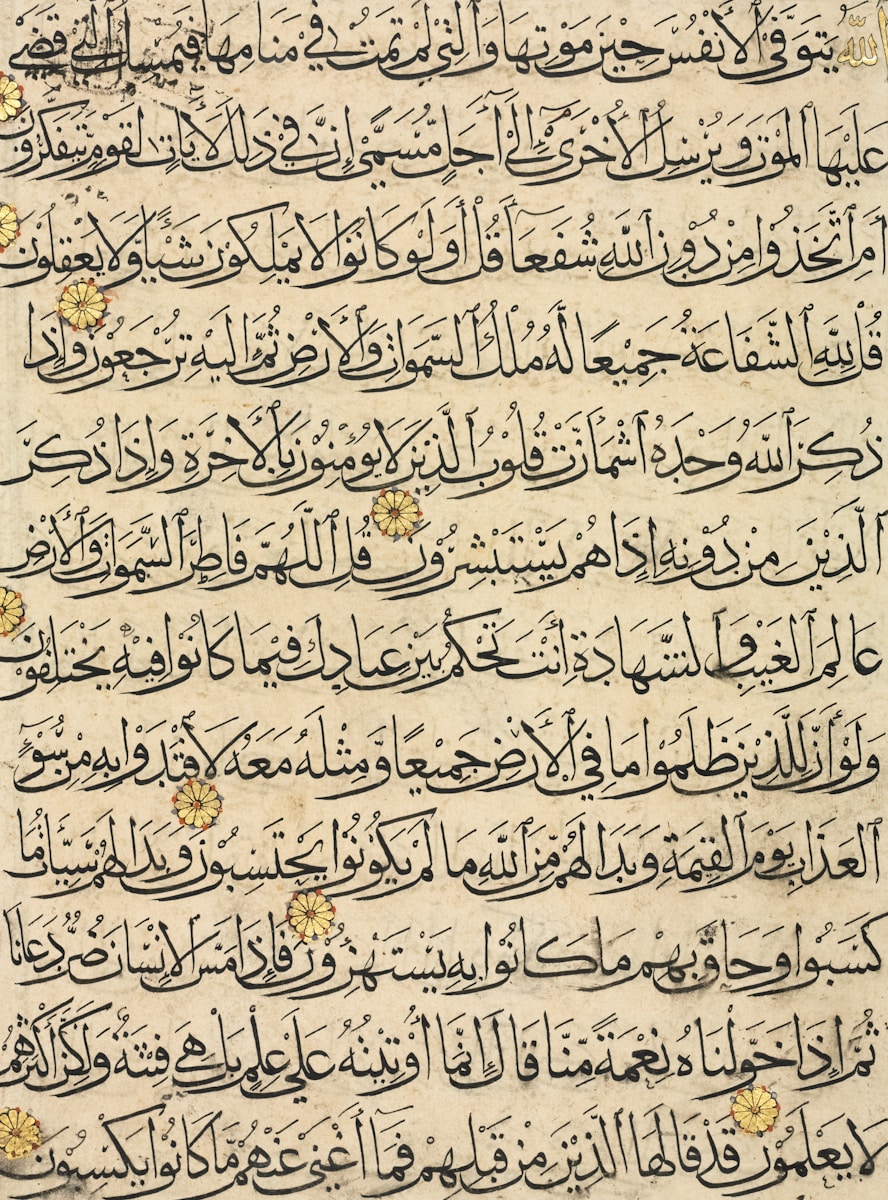 ٱللَّهُ يَتَوَفَّى ٱلْأَنْفُسَ حِيْنَ مَوْتِهَا وَٱلَّتِي لَمْ تَمُتْ فِيْ مَنَامِهَا فَيُمْسِكُ ٱلَّتِي قَضَىٰ
عَلَيْهَا ٱلْمَوْتَ وَيُرْسِلُ ٱلْأُخْرَىٰٓ إِلَىٰٓ أَجَلٍ مُّسَمًّى إِنَّ فِيْ ذٰلِكَ لَأٰيَاتٍ لِقَوْمٍ يَّتَفَكَّرُوْنَ
أَمِ ٱتَّخَذُوْا مِنْ دُوْنِ ٱللَّهِ شُفَعَآءَ قُلْ أَوَلَوْ كَانُوْا لَا يَمْلِكُوْنَ شَيْـًٔا وَّلَا يَعْقِلُوْنَ
قُلْ لِلَّهِ ٱلشَّفَاعَةُ جَمِيْعًا لَّهُ مُلْكُ ٱلسَّمٰوَاتِ وَٱلْأَرْضِ ثُمَّ إِلَيْهِ تُرْجَعُوْنَ وَإِذَا
ذُكِرَ ٱللَّهُ وَحْدَهُ ٱشْمَأَزَّتْ قُلُوْبُ ٱلَّذِيْنَ لَا يُؤْمِنُوْنَ بِٱلْأٰخِرَةِ وَإِذَا ذُكِرَ
ٱلَّذِيْنَ مِنْ دُوْنِهِ إِذَا هُمْ يَسْتَبْشِرُوْنَ قُلِ ٱللَّهُمَّ فَاطِرَ ٱلسَّمٰوَاتِ وَٱلْأَرْضِ
عَالِمَ ٱلْغَيْبِ وَٱلشَّهَادَةِ أَنْتَ تَحْكُمُ بَيْنَ عِبَادِكَ فِيْمَا كَانُوْا فِيْهِ يَخْتَلِفُوْنَ
وَلَوْ أَنَّ لِلَّذِيْنَ ظَلَمُوْا مَا فِي ٱلْأَرْضِ جَمِيْعًا وَّمِثْلَهُ مَعَهُ لَافْتَدَوْا بِهِ مِنْ سُوْٓءِ
ٱلْعَذَابِ يَوْمَ ٱلْقِيٰمَةِ وَبَدَا لَهُمْ مِّنَ ٱللَّهِ مَا لَمْ يَكُوْنُوْا يَحْتَسِبُوْنَ وَبَدَا لَهُمْ سَيِّـَٔاتُ مَا
كَسَبُوْا وَحَاقَ بِهِمْ مَا كَانُوْا بِهِ يَسْتَهْزِؤُنَ فَإِذَا مَسَّ الْإِنْسَانَ ضُرٌّ دَعَانَا
ثُمَّ إِذَا خَوَّلْنَاهُ نِعْمَةً مِّنَّا قَالَ إِنَّمَا أُوْتِيْتُهُ عَلَىٰ عِلْمٍ بَلْ هِيَ فِتْنَةٌ وَلٰكِنَّ أَكْثَرَهُمْ
لَا يَعْلَمُوْنَ قَدْ قَالَهَا ٱلَّذِيْنَ مِنْ قَبْلِهِمْ فَمَا أَغْنَىٰ عَنْهُمْ مَّا كَانُوْا يَكْسِبُوْنَ